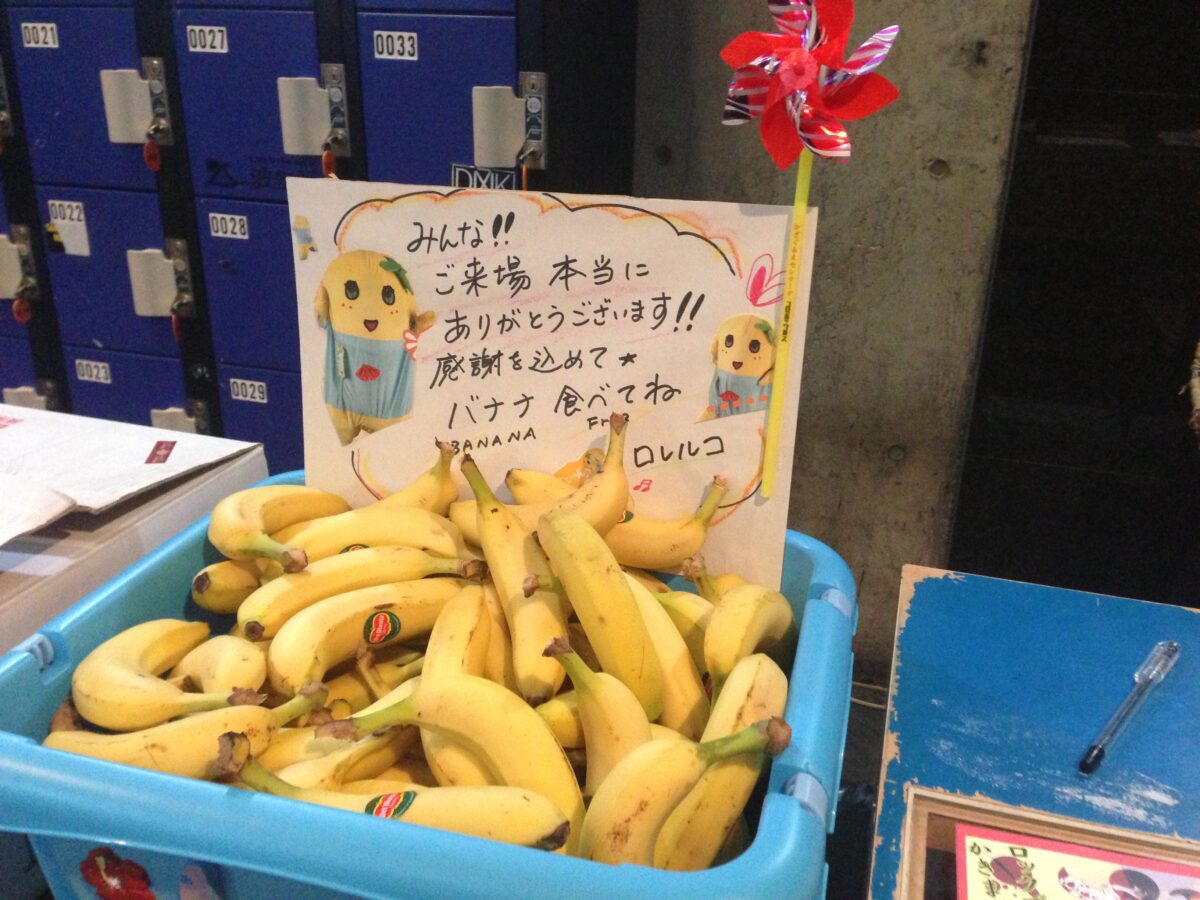 0021
0027
0033
0022
0028
0023
0029
DMK
みんな!!
ご来場 本当に
ありがとうございます!!
感謝を込めて★
バナナ 食べてね
BANANA
ロレルコ
Del Monte
ロック
かき